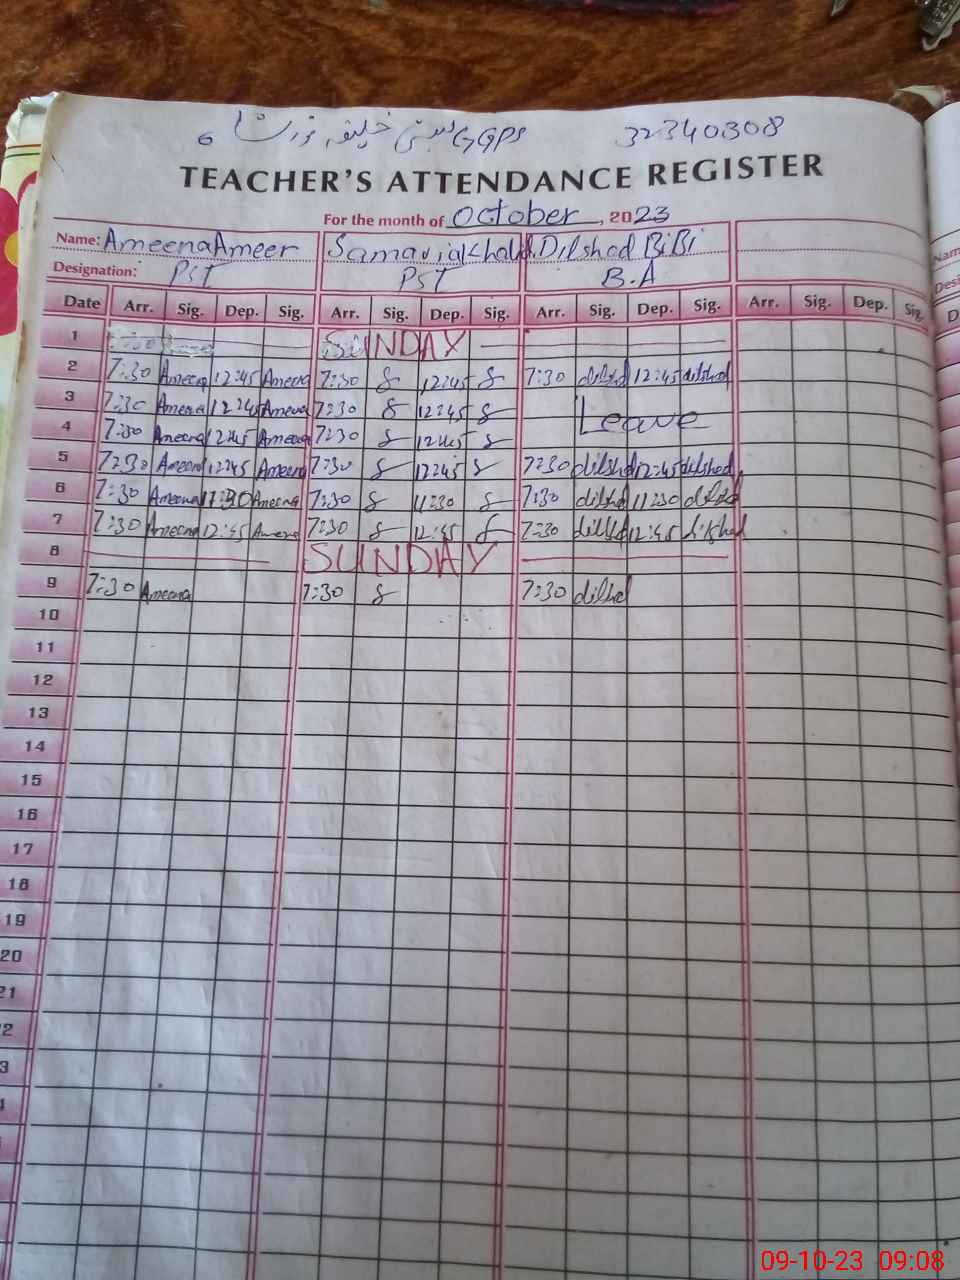 GGPS بستی خلیفہ 32340308
TEACHER'S ATTENDANCE REGISTER
For the month of October, 2023
Name: Ameena Ameer Samavia Khalid Dilshad BiBi
Designation: PST PST B.A
Date Arr. Sig. Dep. Sig. Arr. Sig. Dep. Sig. Arr. Sig. Dep. Sig. Arr. Sig. Dep. Sig.
1 SUNDAY
2 7:30 Ameena 12:45 Ameena 7:30 12:45 7:30 dilshad 12:45 dilshad
3 7:30 Ameena 12:45 Ameena 7:30 12:45 Leave
4 7:30 Ameena 12:45 Ameena 7:30 12:45
5 7:30 Ameena 12:45 Ameena 7:30 12:45 7:30 dilshad 12:45 dilshad
6 7:30 Ameena 11:30 Ameena 7:30 11:30 7:30 dilshad 11:30 dilshad
7 7:30 Ameena 12:45 Ameena 7:30 12:45 7:30 dilshad 12:45 dilshad
8 SUNDAY
9 7:30 Ameena 7:30 7:30 dilshad
10
11
12
13
14
15
16
17
18
19
20
21
09-10-23 09:08